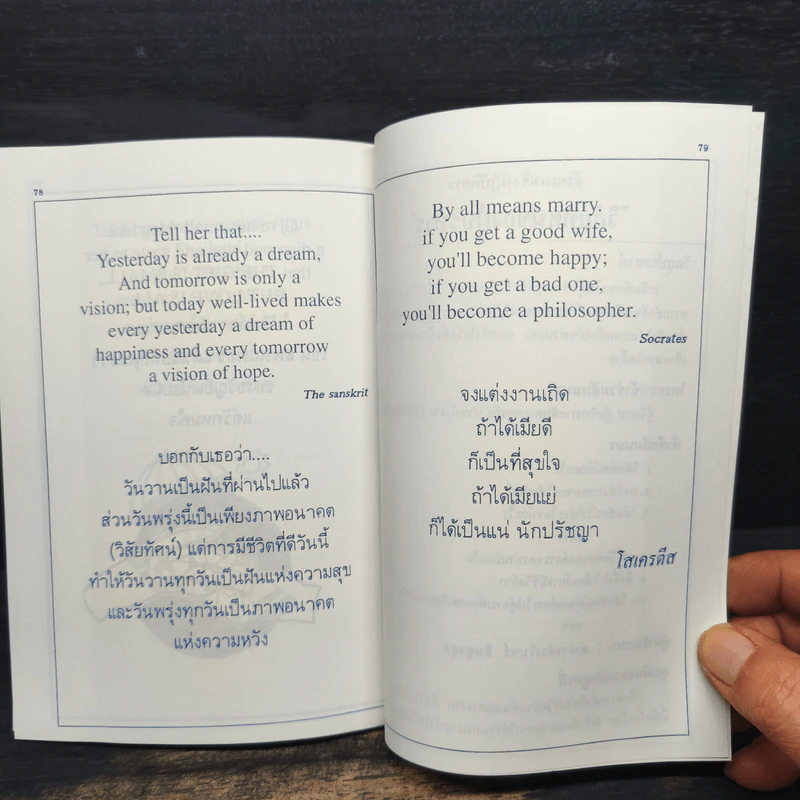 78
Tell her that....
Yesterday is already a dream,
And tomorrow is only a
vision; but today well-lived makes
every yesterday a dream of
happiness and every tomorrow
a vision of hope.
The sanskrit
บอกกับเธอว่า....
วันวานเป็นฝันที่ผ่านไปแล้ว
ส่วนวันพรุ่งนี้เป็นเพียงภาพอนาคต
(วิสัยทัศน์) แต่การมีชีวิตที่ดีวันนี้
ทำให้วันวานทุกวันเป็นฝันแห่งความสุข
และวันพรุ่งทุกวันเป็นภาพอนาคต
แห่งความหวัง
79
By all means marry.
if you get a good wife,
you'll become happy;
if you get a bad one,
you'll become a philosopher.
Socrates
จงแต่งงานเถิด
ถ้าได้เมียดี
ก็เป็นที่สุขใจ
ถ้าได้เมียแย่
ก็ได้เป็นแน่ นักปรัชญา
โสเครตีส